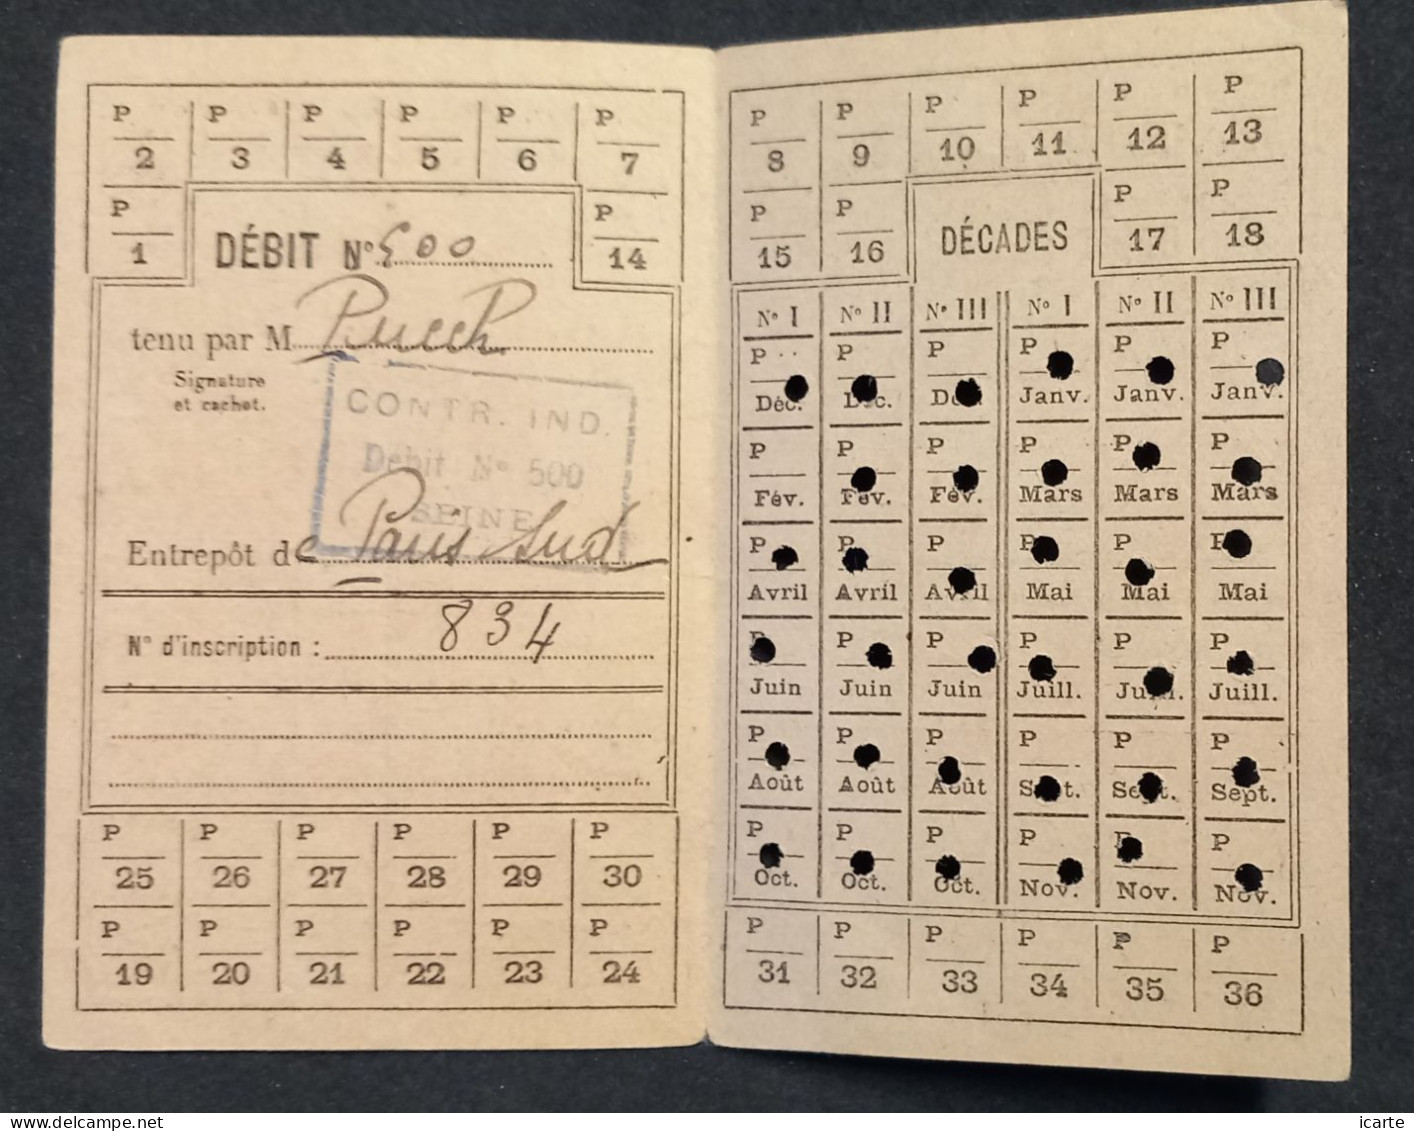 P P P P P P
2 3 4 5 6 7
P P
1 14
DÉBIT N° 500
tenu par M Puech
Signature
et cachet.
CONTR. IND.
Débit N° 500
SEINE
Entrepôt de Paris Sud
N° d'inscription : 834
P P P P P P
25 26 27 28 29 30
P P P P P P
19 20 21 22 23 24
P P P P P P
8 9 10 11 12 13
P P P P
15 16 17 18
DÉCADES
N° I N° II N° III N° I N° II N° III
P P P P P P
Déc. Déc. Déc. Janv. Janv. Janv.
P P P P P P
Fév. Fév. Fév. Mars Mars Mars
P P P P P P
Avril Avril Avril Mai Mai Mai
P P P P P P
Juin Juin Juin Juill. Juill. Juill.
P P P P P P
Août Août Août Sept. Sept. Sept.
P P P P P P
Oct. Oct. Oct. Nov. Nov. Nov.
P P P P P P
31 32 33 34 35 36
delcampe.net
icarte